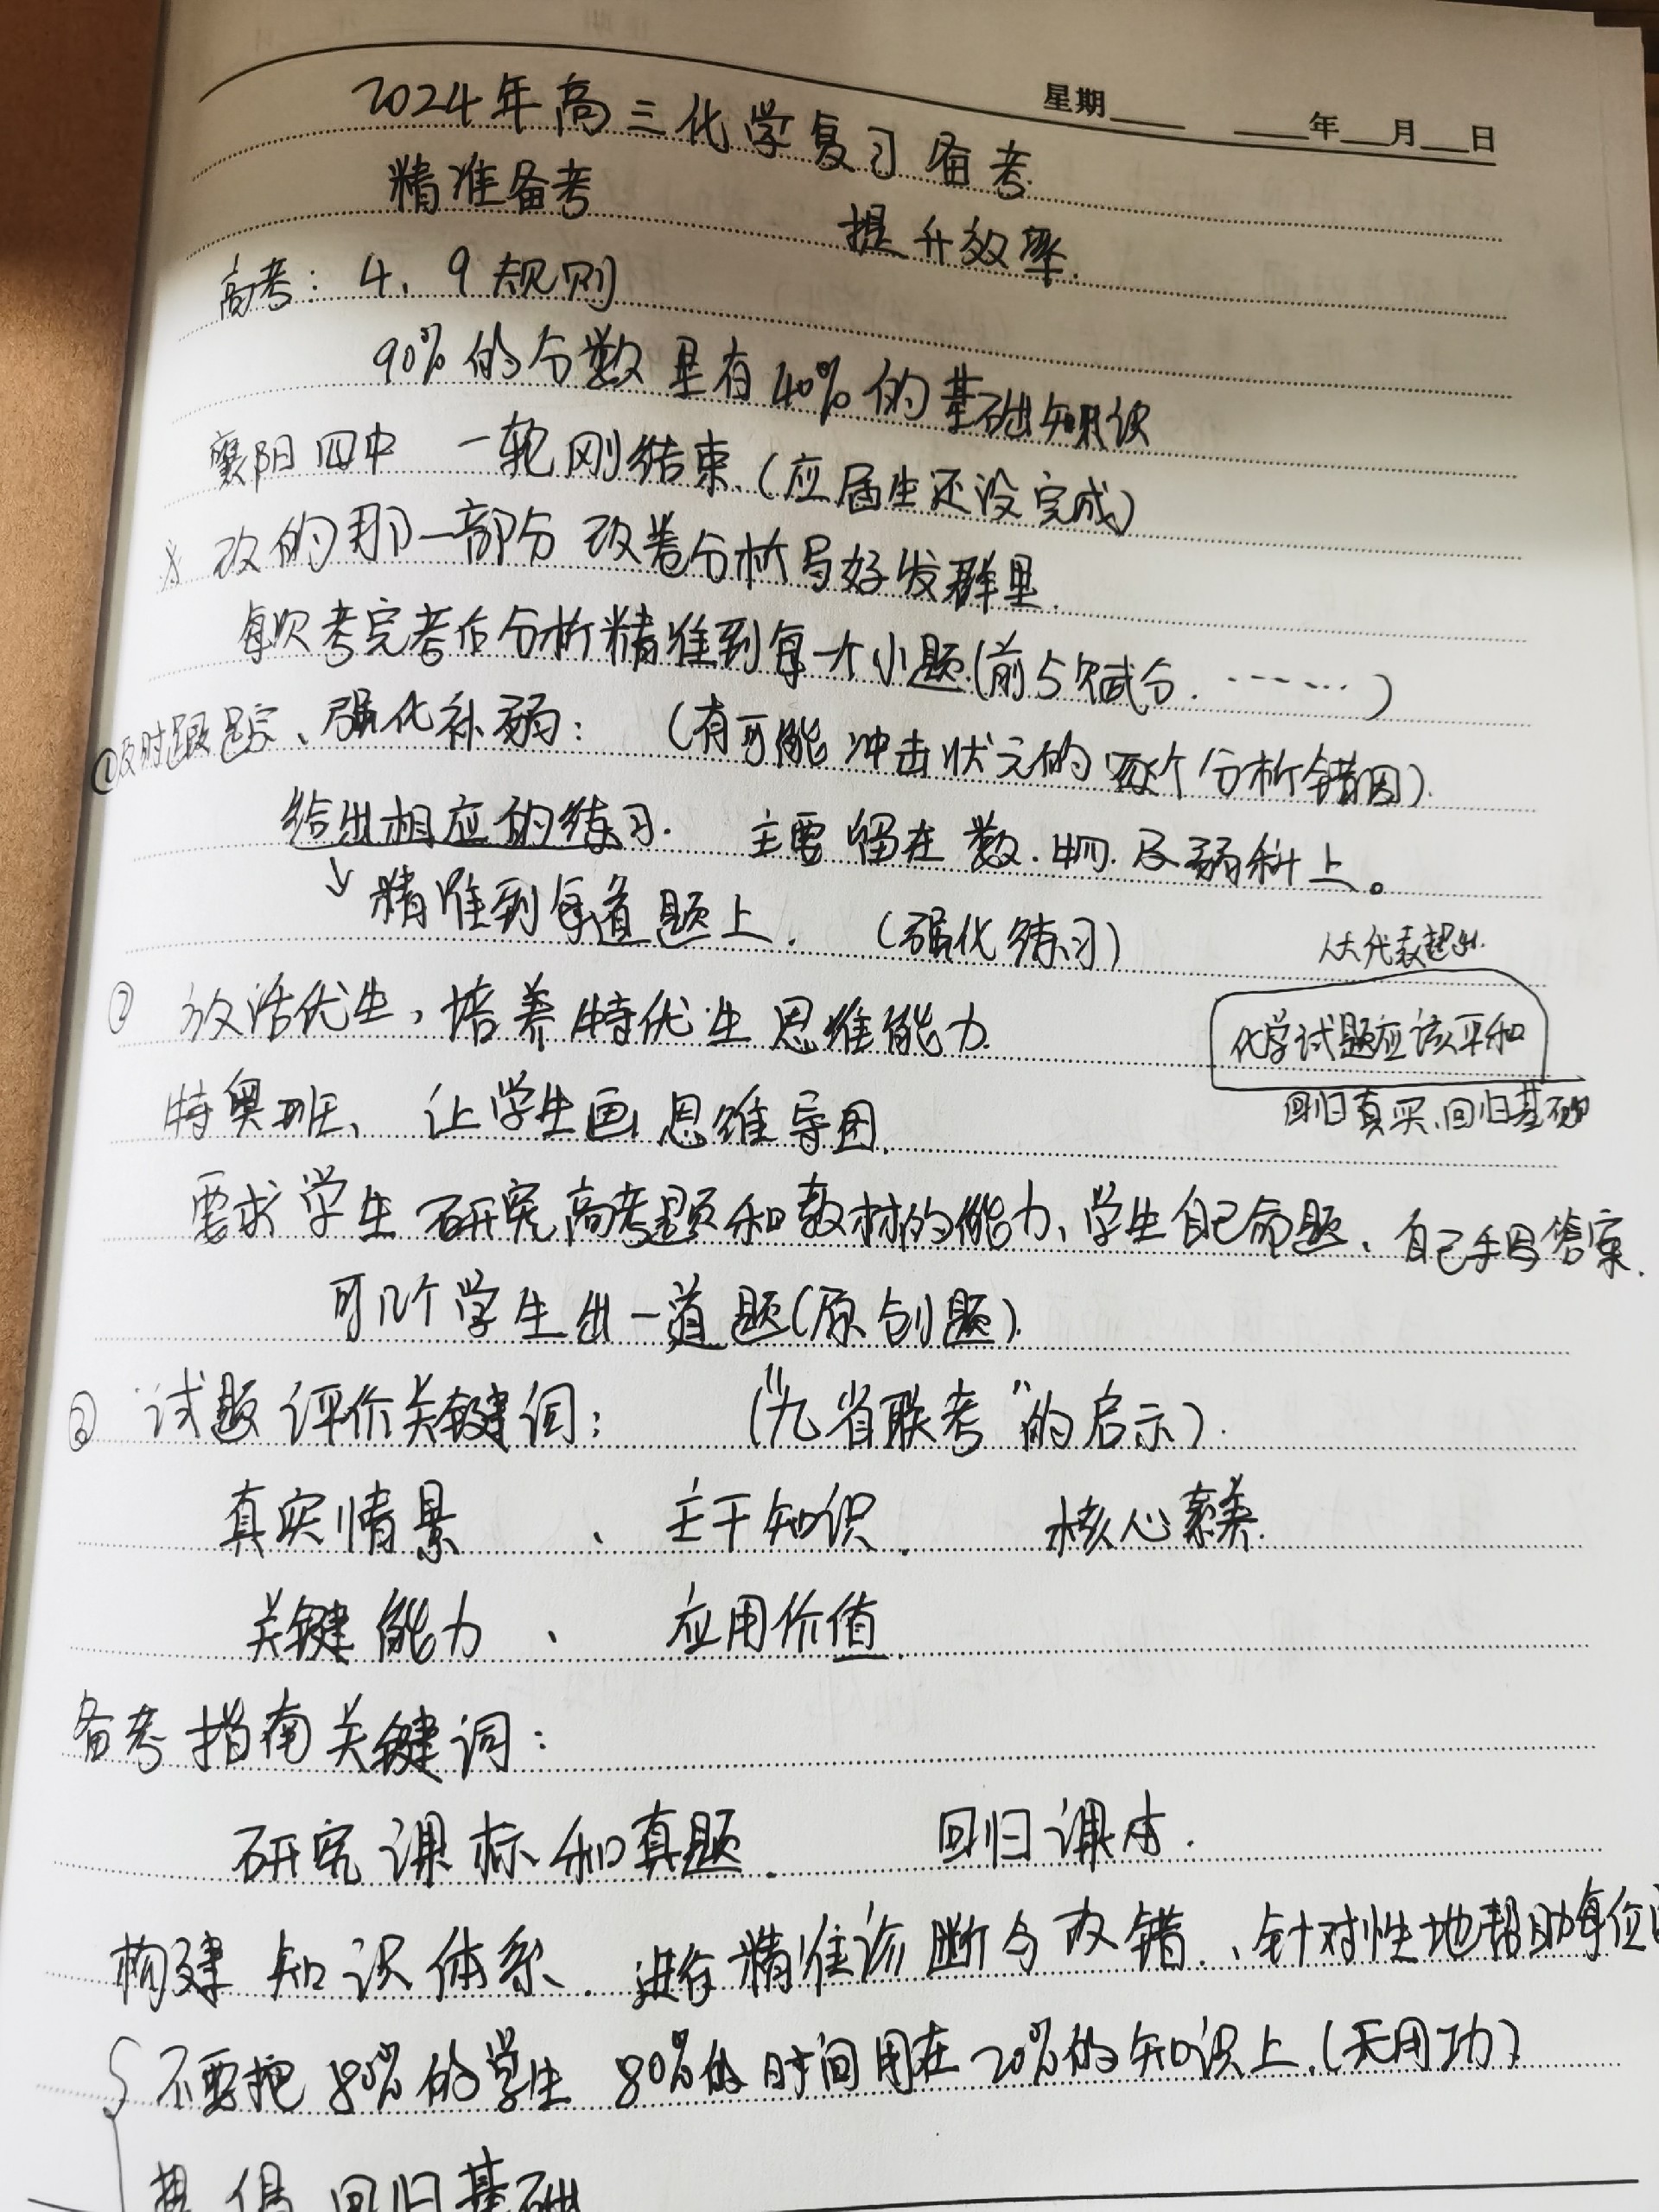 星期____ ____年___月___日
2024年高三化学复习备考
精准备考 提升效率.
高考：4、9规则
90%的分数是有40%的基础知识
襄阳四中 一轮刚结束.(应届生还没完成)
改的那一部分 改卷分析写好发群里.
每次考完考后分析精准到每一个小题.(前5名减分. ……)
①及时跟踪、强化补弱： (有可能冲击状元的 逐个分析错因).
给出相应的练习. 主要 留在 数.物.及弱科上。
↓ 精准到每道题上. (强化练习)
人大代表提出.
② 放活优生，培养特优生思维能力.
化学试题应该平和
回归真实、回归基础
特奥班、让学生画思维导图.
要求学生研究高考题和教材的能力、学生自己命题、自己手写答案.
可几个学生出一道题(原创题).
③ 试题评价关键词： ("九省联考"的启示).
真实情景 、 主干知识. 核心素养.
关键能力 、 应用价值.
备考指南关键词：
研究课标和真题. 回归课本.
构建知识体系. 进行精准诊断与改错.、针对性地帮助每位
不要把80%的学生 80%的时间用在20%的知识上.(无用功)
提倡回归基础